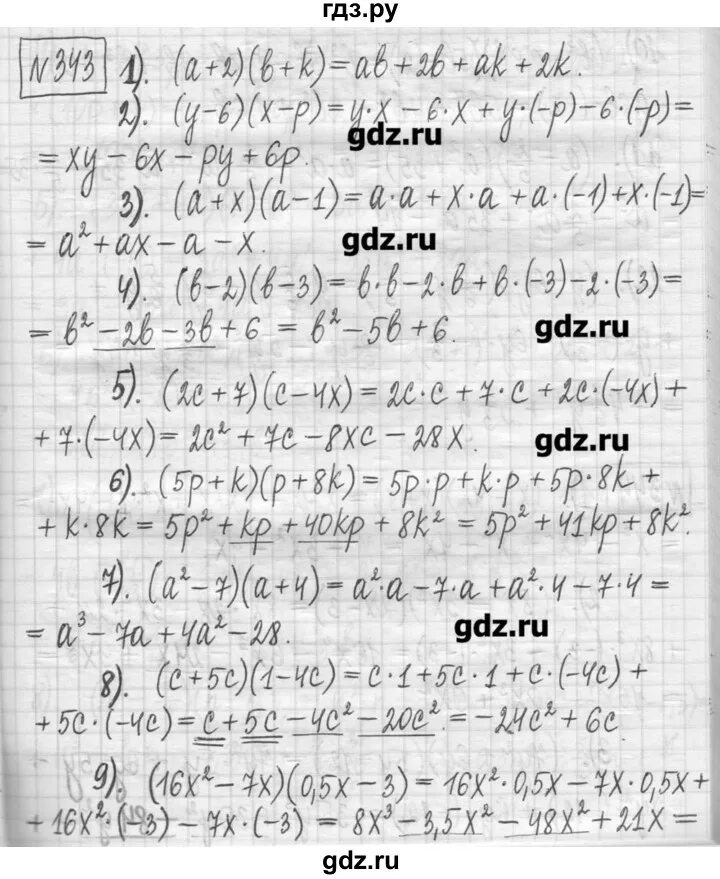 гдз.ру
№343 1). (a+2)(b+k)=ab+2b+ak+2k.
2). (y-6)(x-p)=y·x-6·x+y·(-p)-6·(-p)=
gdz.ru
=xy-6x-py+6p.
3). (a+x)(a-1)=a·a+x·a+a·(-1)+x·(-1)=
=a²+ax-a-x.
gdz.ru
4). (b-2)(b-3)=b·b-2·b+b·(-3)-2·(-3)=
=b²-2b-3b+6=b²-5b+6.
gdz.ru
5). (2c+7)(c-4x)=2c·c+7·c+2c·(-4x)+
+7·(-4x)=2c²+7c-8xc-28x.
gdz.ru
6). (5p+k)(p+8k)=5p·p+k·p+5p·8k+
+k·8k=5p²+kp+40kp+8k²=5p²+41kp+8k².
7). (a²-7)(a+4)=a²·a-7·a+a²·4-7·4=
=a³-7a+4a²-28.
gdz.ru
8). (c+5c)(1-4c)=c·1+5c·1+c·(-4c)+
+5c·(-4c)=c+5c-4c²-20c²=-24c²+6c.
9). (16x²-7x)(0,5x-3)=16x²·0,5x-7x·0,5x+
+16x²·(-3)-7x·(-3)=8x³-3,5x²-48x²+21x=
gdz.ru